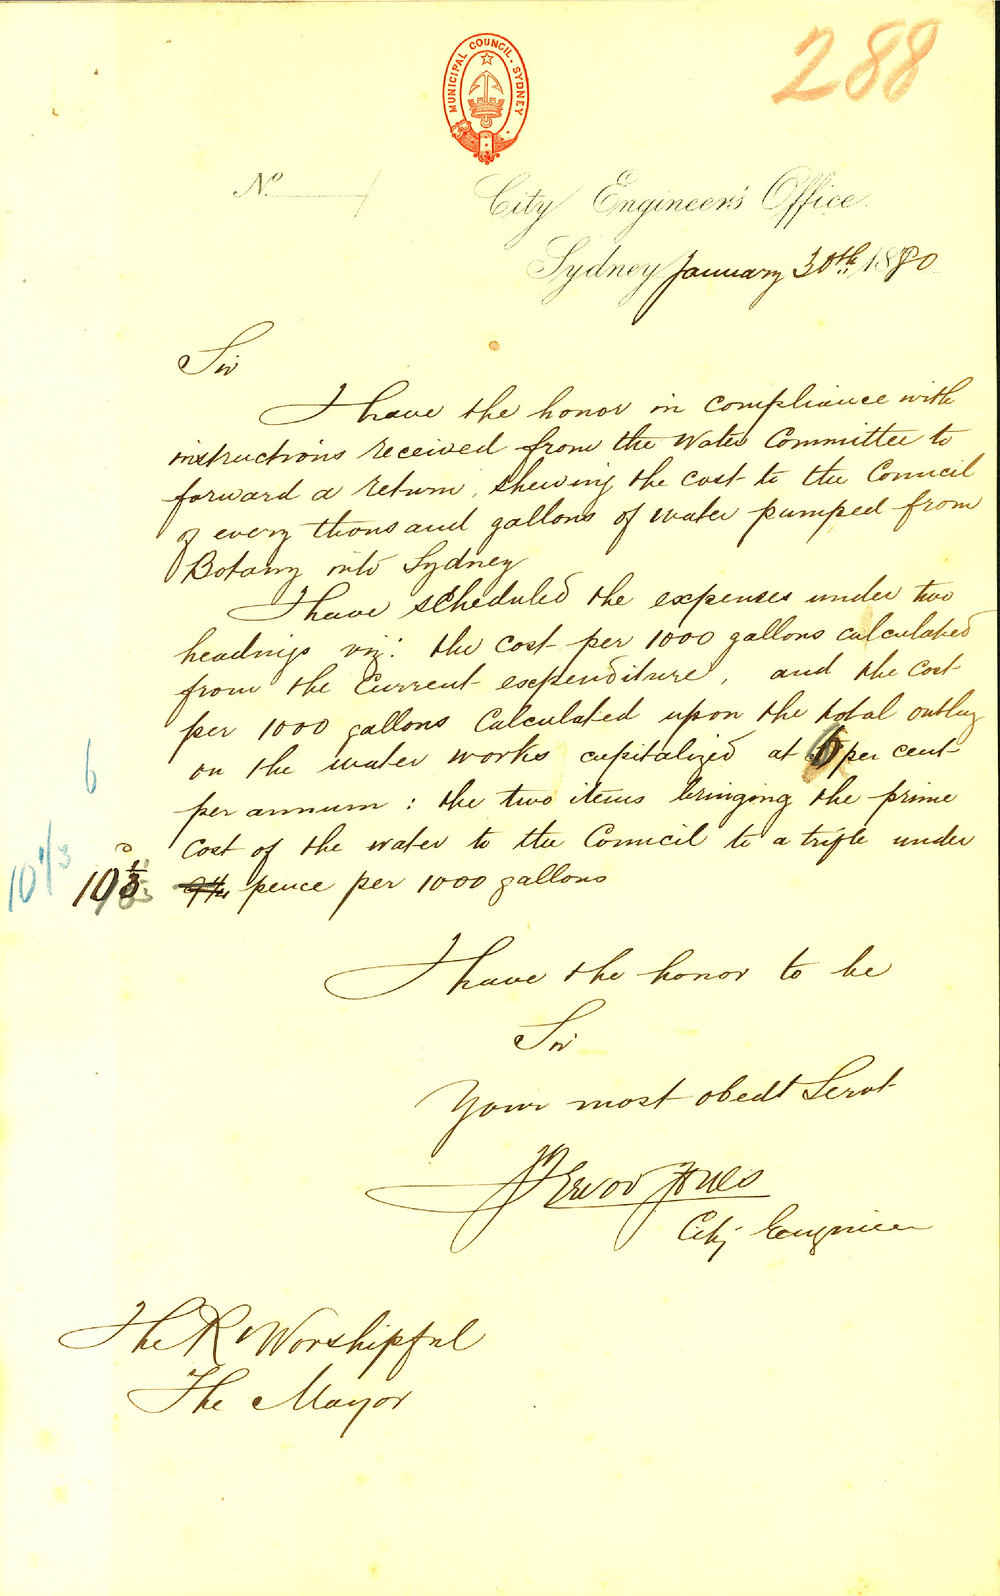 288
MUNICIPAL COUNCIL. SYDNEY
No.
City Engineer's Office.
Sydney January 30th. 1880
Sir
I have the honor in compliance with
instructions received from the Water Committee to
forward a return, shewing the cost to the Council
of every thousand gallons of water pumped from
Botany into Sydney
I have scheduled the expenses under two
headings viz: the cost per 1000 gallons calculated
from the Current expenditure, and the cost
per 1000 gallons Calculated upon the total outlay
on the water works capitalized at 6 per cent
6
per annum: the two items bringing the prime
Cost of the water to the Council to a trifle under
10 1/3
10 1/3 d
pence per 1000 gallons
I have the honor to be
Sir
Your most obedt Servt
Trevor Jones
City Engineer
The Rt Worshipful
The Mayor